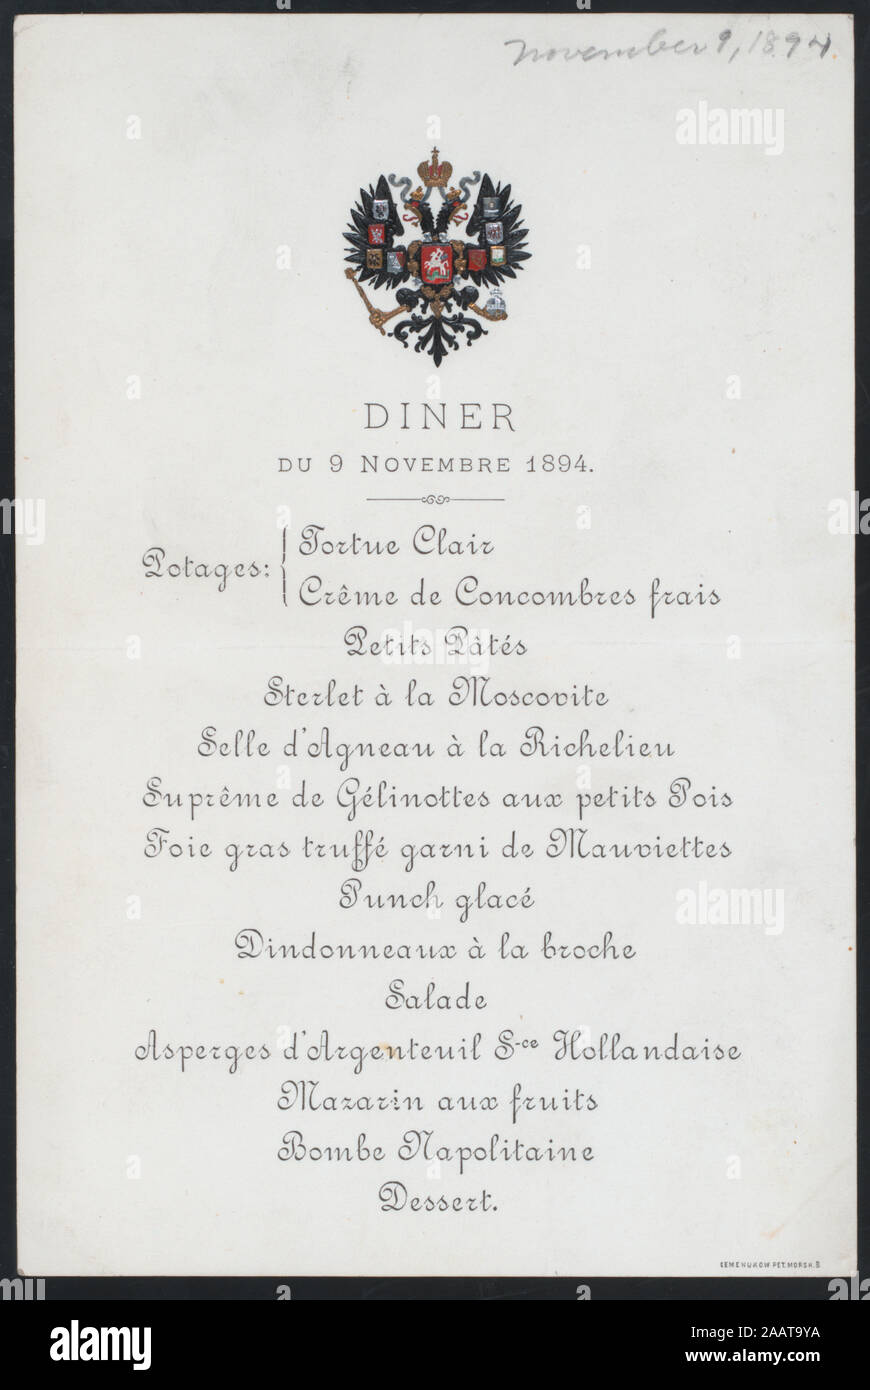 November 9, 1894
DINER
DU 9 NOVEMBRE 1894.
Potages: { Tortue Clair
Crême de Concombres frais
Petits Pâtés
Sterlet à la Moscovite
Selle d'Agneau à la Richelieu
Suprême de Gélinottes aux petits Pois
Foie gras truffé garni de Mauviettes
Punch glacé
Dindonneaux à la broche
Salade
Asperges d'Argenteuil S-ce Hollandaise
Mazarin aux fruits
Bombe Napolitaine
Dessert.
SEMENUKOW PET. MORSK. 8
a alamy
alamy
Image ID: 2AAT9YA
www.alamy.com